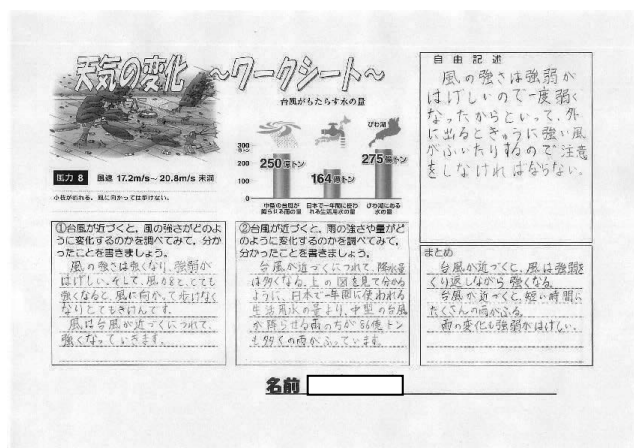 天気の変化 ～ワークシート～
台風がもたらす水の量
びわ湖
300
億トン
200
100
0
250億トン
164億トン
275億トン
中型の台風が
降らせる雨の量
日本で一年間に使わ
れる生活用水の量
びわ湖にある
水の量
風力 8 風速 17.2m/s～ 20.8m/s 未満
小枝が折れる。風に向かっては歩けない。
自由記述
風の強さは強弱が
はげしいので一度弱く
なったからといって、外
に出るときゅうに強い風
がふいたりするので注意
をしなければならない。
①台風が近づくと、風の強さがどのよ
うに変化するのかを調べてみて、分か
ったことを書きましょう。
風の強さは強くなり、強弱が
はげしい。そして、風力8と、とても
強くなると、風に向かって歩けなく
なりとてもきけんです。
風は台風が近づくにつれて、
強くなっていきます。
②台風が近づくと、雨の強さや量がど
のように変化するのかを調べてみて、
分かったことを書きましょう。
台風が近づくにつれて、降水量
は多くなる。上の図を見て分かる
ように、日本で一年間に使われる
生活用水の量より、中型の台風
が降らせる雨の方が86億トン
も多くの雨がふっています。
まとめ
台風が近づくと、風は強弱を
くり返しながら強くなる。
台風が近づくと、短い時間に
たくさんの雨がふる。
雨の変化も強弱がはげしい。
名前